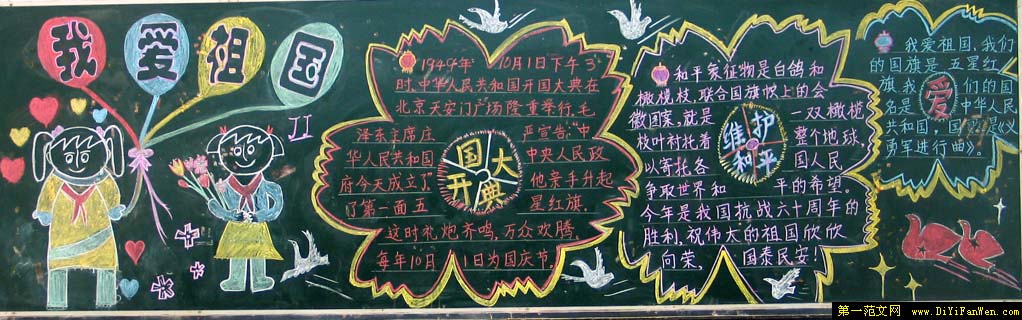 我爱祖国
1949年10月1日下午3
时,中华人民共和国开国大典在
北京天安门广场隆重举行,毛
泽东主席庄 严宣告:"中
华人民共和国 中央人民政
府今天成立了" 他亲手升起
了第一面五 星红旗.
这时礼炮齐鸣,万众欢腾.
每年10月1日为国庆节.
开国大典
和平象征物是白鸽和
橄榄枝,联合国旗帜上的会
徽图案,就是 一双橄榄
枝叶衬托着 整个地球,
以寄托各 国人民
争取世界和 平的希望。
今年是我国抗战六十周年的
胜利,祝伟大的祖国欣欣
向荣, 国泰民安!
维护和平
我爱祖国,我们
的国旗是五星红
旗,我 们的国
名是 中华人民
共和国,国 是《义
勇军进行曲》。
爱
第一范文网 www.DiYiFanWen.com